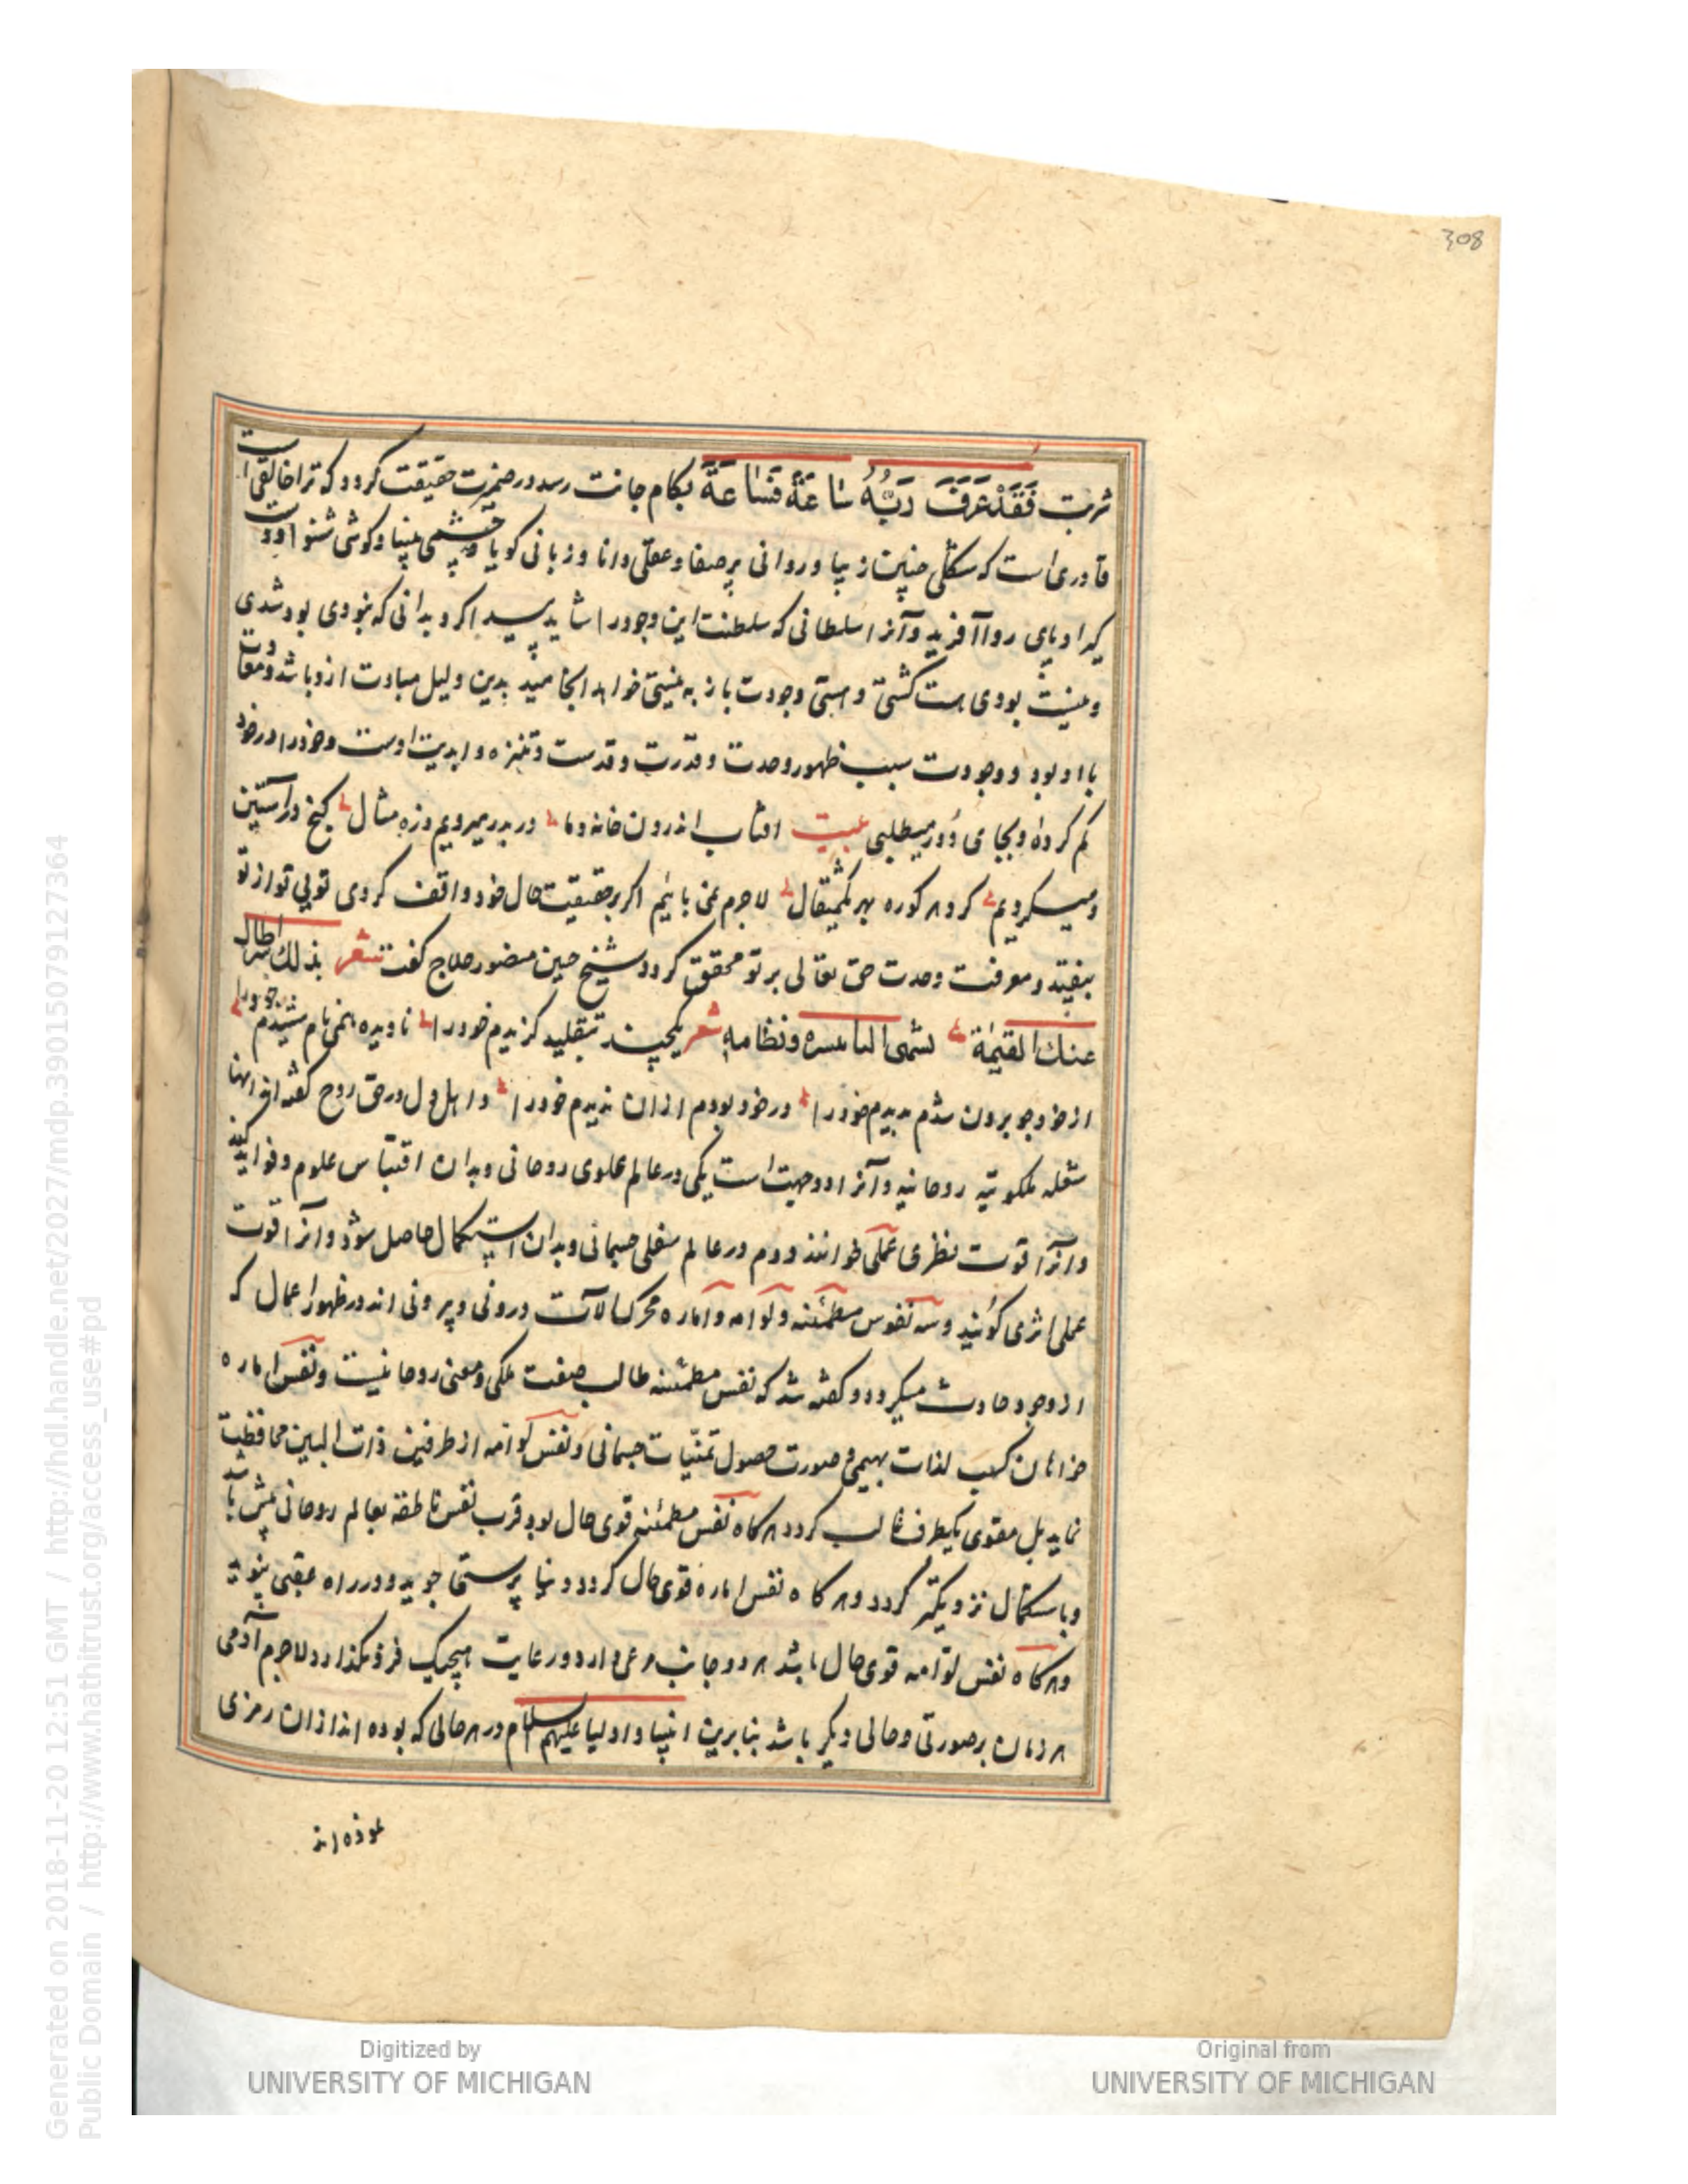 308
شربت فَقَدْ عَرَفَ رَبَّهُ سَاعَةً فَسَاعَةً بکام جانت رسد در ضمرت حقیقت کردد که ترا خالقی است
قادری است که شکلی چنین زیبا و روانی پرصفا و عقلی دانا و زبانی کویا و چشمی بینا و کوشی شنوا و دست
کیرا و پای روا آفرید و آنرا سلطانی که سلطنت این وجود را شاید پس اکر بدانی که نبودی بود شدی
و نیست بودی هست کشتی و هستی وجودت باز به نیستی خواهد انجامید بدین دلیل مبادت ازو باشد و معادت
با او بود و وجودت سبب ظهور وحدت و قدرت و قدست و تنزه و ابدیت اوست و خود را در خود
کم کردهٔ و بجای دور میطلبی بیت افتاب اندرون خانه و ما در بدر میرویم ذره مثال کنج در آستین
و میکردیم کرد هر کوره بهر یکمثقال لاجرم غنی بائیم اکر بر حقیقت حال خود واقف کردی توئی تو از تو
بیفتد و معرفت وحدت حق تعالی بر تو محقق کردد شیخ حسین منصور حلاج کفت شعر بذلک سر طال
عنک القیمة و نظامه شعر یکچند بتقلید کزیدم خود را نادیده همی نام شنیدم خود را
از خود چو برون شدم بدیدم خود را در خود بودم ازان ندیدم خود را و اهل دل در حق روح کفته اند انها
شعله ملکوتیه روحانیه و آنرا دو جهت است یکی در عالم علوی روحانی و بدان اقتباس علوم و فواید کند
و آنرا قوت نظری عملی خوانند و دوم در عالم سفلی جسمانی و بدان استکمال حاصل شود و آنرا قوت
عملی اثری کویند و سه نفوس مطمئنه و لوامه و اماره محرک الآت درونی و بیرونی اند در ظهور اعمال که
از وجود حادث میکردد و کفته شد که نفس مطمئنه طالب صفت ملکی و معنی روحانیست و نفس اماره
خواهان کسب لذات بهیمی و صورت حصول تمنیات جسمانی و نفس لوامه از طرفین ذات البین محافظت
نماید بل مقوی یکطرف غالب کردد هرکاه نفس مطمئنه قوی حال بود قرب نفس ناطقه بعالم روحانی بیش باشد
و باستکمال نزدیکتر کردد و هرکاه نفس اماره قوی حال کردد دنیا پرستی جوید و در راه عقبی نپوید
و هرکاه نفس لوامه قوی حال باشد هر دو جانب مرعی دارد و رعایت هیچیک فرو نکذارد لاجرم آدمی
هر زمان بر صورتی و حالی دیکر باشد بنابرین انبیا و اولیا علیهم السلام در هر حالی که بوده اند ازان رمزی
نموده اند
Generated on 2018-11-20 12:51 GMT / http://hdl.handle.net/2027/mdp.39015079127364
Public Domain / http://www.hathitrust.org/access_use#pd
Digitized by
UNIVERSITY OF MICHIGAN
Original from
UNIVERSITY OF MICHIGAN